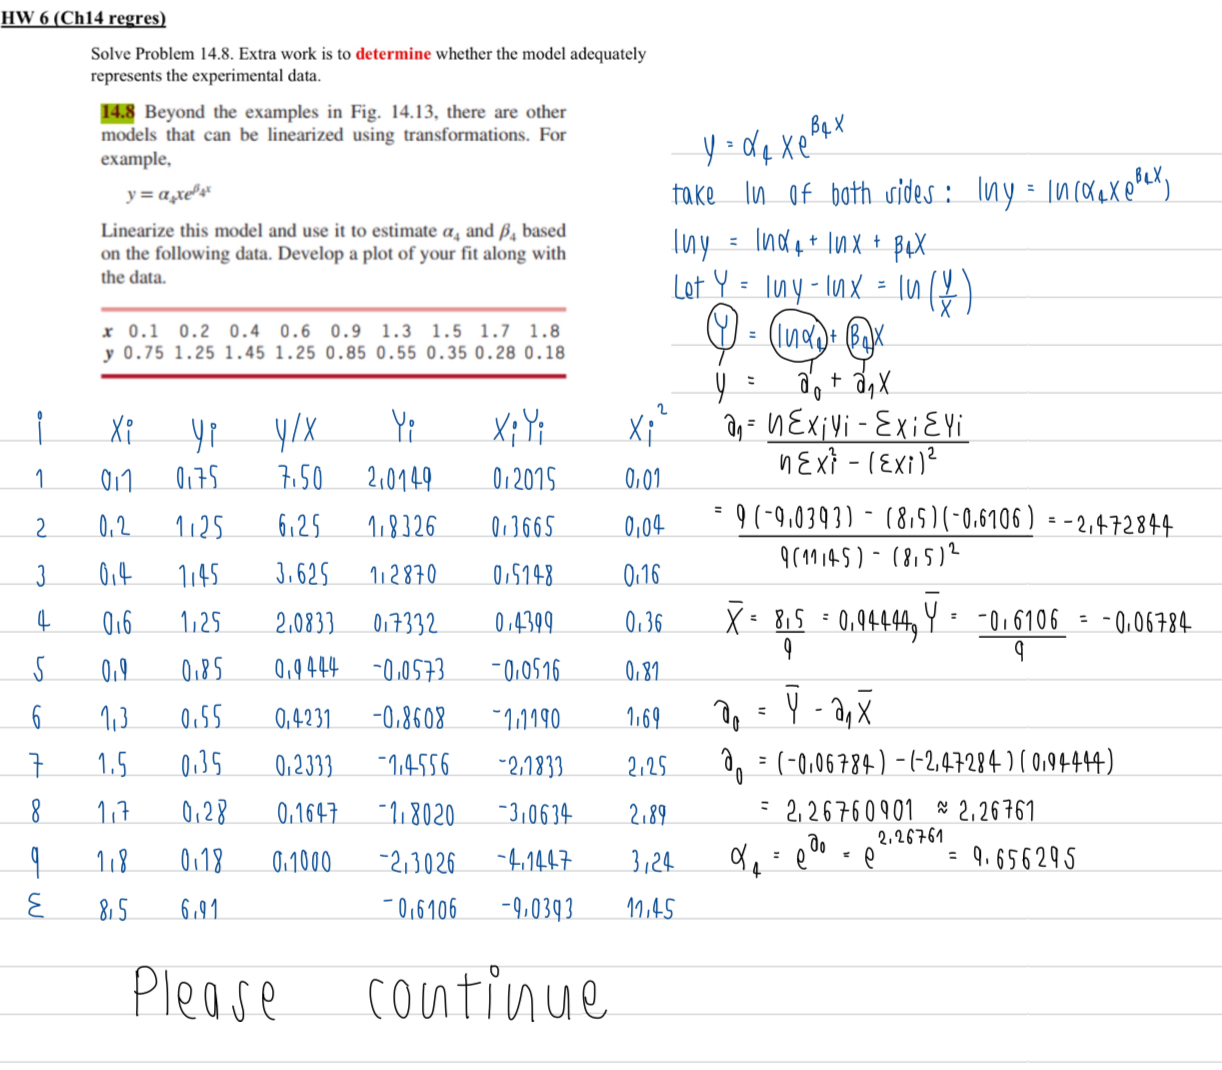 HW 6 (Ch14 regres)
Solve Problem 14.8. Extra work is to determine whether the model adequately
represents the experimental data.
14.8 Beyond the examples in Fig. 14.13, there are other
models that can be linearized using transformations. For
example,
y = α₄xe^β₄x
Linearize this model and use it to estimate α₄ and β₄ based
on the following data. Develop a plot of your fit along with
the data.
x 0.1 0.2 0.4 0.6 0.9 1.3 1.5 1.7 1.8
y 0.75 1.25 1.45 1.25 0.85 0.55 0.35 0.28 0.18
y = α₄ xe^β₄x
take ln of both sides : lny = ln(α₄xe^β₄x)
lny = lnα₄ + lnx + β₄x
Let Y = lny - lnx = ln(y/x)
Y = lnα₄ + β₄x
y = a₀ + a₁x
a₁ = nΣxiyi - Σxi Σyi
nΣxi² - (Σxi)²
= 9(-9,0393) - (8,5)(-0,6106) = -2,472844
9(11,45) - (8,5)²
x̄ = 8,5 = 0,94444, Ȳ = -0,6106 = -0,06784
9 9
a₀ = Ȳ - a₁x̄
a₀ = (-0,06784) - (-2,47284)(0,94444)
= 2,26760901 ≈ 2,26761
α₄ = e^a₀ = e^2,26761 = 9.656295
i Xi yi y/x Yi XiYi Xi²
1 0,1 0,75 7,50 2,0149 0,2015 0,01
2 0,2 1,25 6,25 1,8326 0,3665 0,04
3 0,4 1,45 3,625 1,2870 0,5148 0,16
4 0,6 1,25 2,0833 0,7332 0,4399 0,36
5 0,9 0,85 0,9444 -0,0573 -0,0516 0,81
6 1,3 0,55 0,4231 -0,8608 -1,1190 1,69
7 1.5 0,35 0,2333 -1,4556 -2,1833 2,25
8 1,7 0,28 0,1647 -1,8020 -3,0634 2,89
9 1,8 0,18 0,1000 -2,3026 -4,1447 3,24
Σ 8,5 6,91 -0,6106 -9,0393 11,45
Please continue